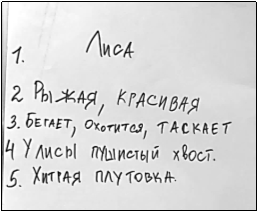 1. Лиса
2 Рыжая, красивая
3. Бегает, охотится, таскает
4 У лисы пушистый хвост.
5. Хитрая плутовка.